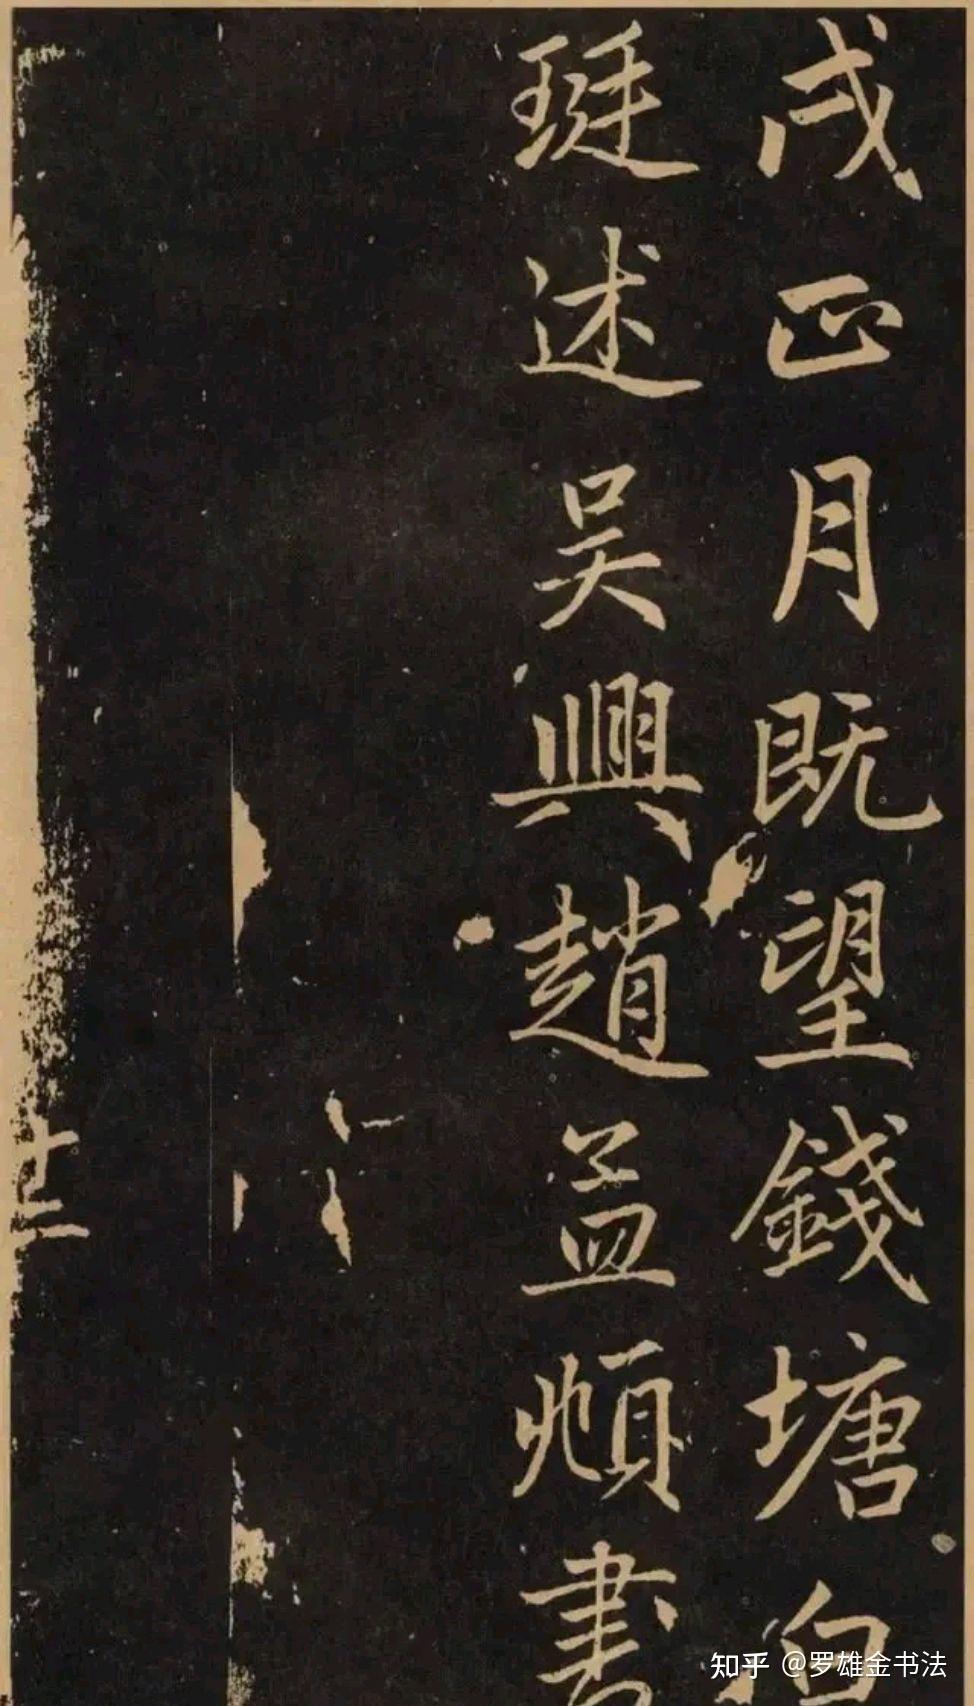 戌正月既望錢塘白
珽述吴興趙孟頫書
知乎 @罗雄金书法